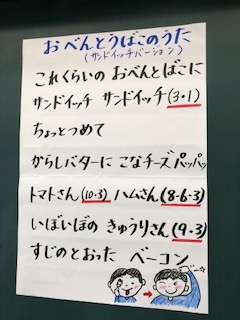 おべんとうばこのうた
(サンドイッチバージョン)
これくらいの おべんとばこに
サンドイッチ サンドイッチ(3・1)
ちょっとつめて
からしバターに こなチーズ パッパッ
トマトさん(10・3) ハムさん(8・6・3)
いぼいぼの きゅうりさん(9・3)
すじのとおった ベーコン